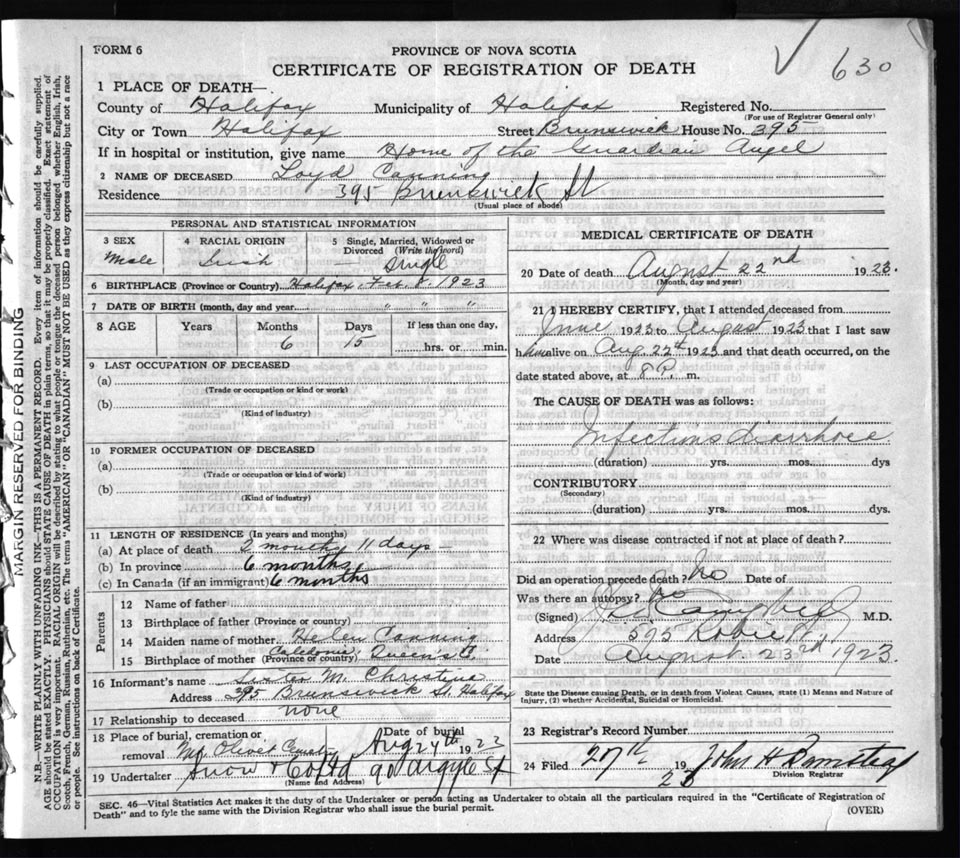 FORM 6
PROVINCE OF NOVA SCOTIA
CERTIFICATE OF REGISTRATION OF DEATH
630
1 PLACE OF DEATH—
County of Halifax Municipality of Halifax Registered No.
(For use of Registrar General only)
City or Town Halifax Street Brunswick House No. 395
If in hospital or institution, give name Home of the Guardian Angel
2 NAME OF DECEASED Loyd Canning
Residence 395 Brunswick St
(Usual place of abode)
PERSONAL AND STATISTICAL INFORMATION
3 SEX
Male
4 RACIAL ORIGIN
Irish
5 Single, Married, Widowed or Divorced (Write the word)
Single
6 BIRTHPLACE (Province or Country) Halifax, Feb. 8. 1923
7 DATE OF BIRTH (month, day and year) " " "
8 AGE Years Months Days If less than one day,
6 15 hrs. or min.
9 LAST OCCUPATION OF DECEASED
(a)
(Trade or occupation or kind or work)
(b)
(Kind of industry)
10 FORMER OCCUPATION OF DECEASED
(a)
(Trade or occupation or kind of work)
(b)
(Kind of industry)
11 LENGTH OF RESIDENCE (In years and months)
(a) At place of death 2 months 11 days —
(b) In province 6 months
(c) In Canada (if an immigrant) 6 months
Parents
12 Name of father
13 Birthplace of father (Province or country)
14 Maiden name of mother Helen Canning
15 Birthplace of mother (Province or country) Caledonia, Queen's C.
16 Informant's name Sister M. Christina
Address 395 Brunswick St, Halifax
17 Relationship to deceased none
18 Place of burial, cremation or removal Mt Olivet Date of burial Aug 24th 1923
19 Undertaker Snow & Co Ltd 90 Argyle St
(Name and Address)
MEDICAL CERTIFICATE OF DEATH
20 Date of death August 22nd 1923.
(Month, day and year)
21 I HEREBY CERTIFY, that I attended deceased from
June 1923 to August 1923 that I last saw
him alive on Aug. 22th 1923 and that death occurred, on the
date stated above, at 8 P. m.
The CAUSE OF DEATH was as follows:
Infectious diarrhoea
(duration) yrs. mos. dys
CONTRIBUTORY
(Secondary)
(duration) yrs. mos. dys.
22 Where was disease contracted if not at place of death?
Did an operation precede death? No Date of
Was there an autopsy? No
(Signed) M.D.
Address 595 Robie St,
Date August 23rd 1923.
State the Disease causing Death, or in death from Violent Causes, state (1) Means and Nature of
Injury, (2) whether Accidental, Suicidal or Homicidal.
23 Registrar's Record Number
24 Filed 27th 1923 John H
Division Registrar
SEC. 46—Vital Statistics Act makes it the duty of the Undertaker or person acting as Undertaker to obtain all the particulars required in the "Certificate of Registration of
Death" and to fyle the same with the Division Registrar who shall issue the burial permit.
(OVER)
MARGIN RESERVED FOR BINDING
N.B.—WRITE PLAINLY WITH UNFADING INK—THIS IS A PERMANENT RECORD. Every item of information should be carefully supplied.
AGE should be stated EXACTLY. PHYSICIANS should STATE CAUSE OF DEATH in plain terms, so that it may be properly classified. Exact statement of
OCCUPATION is very important. RACIAL ORIGIN will be described by stating to what people or tongue the deceased person belonged whether English, Irish,
Scotch, French, German, Russian, Ruthenian, etc. The terms "AMERICAN" OR "CANADIAN" MUST NOT BE USED as they express citizenship but not a race
or people. See instructions on back of Certificate.